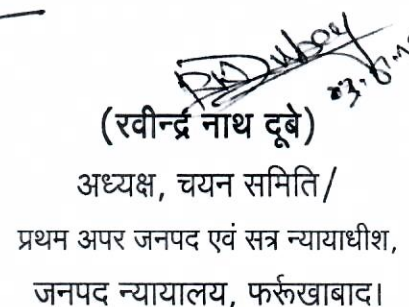 (रवीन्द्र नाथ दूबे)
अध्यक्ष, चयन समिति/
प्रथम अपर जनपद एवं सत्र न्यायाधीश,
जनपद न्यायालय, फर्रूखाबाद।